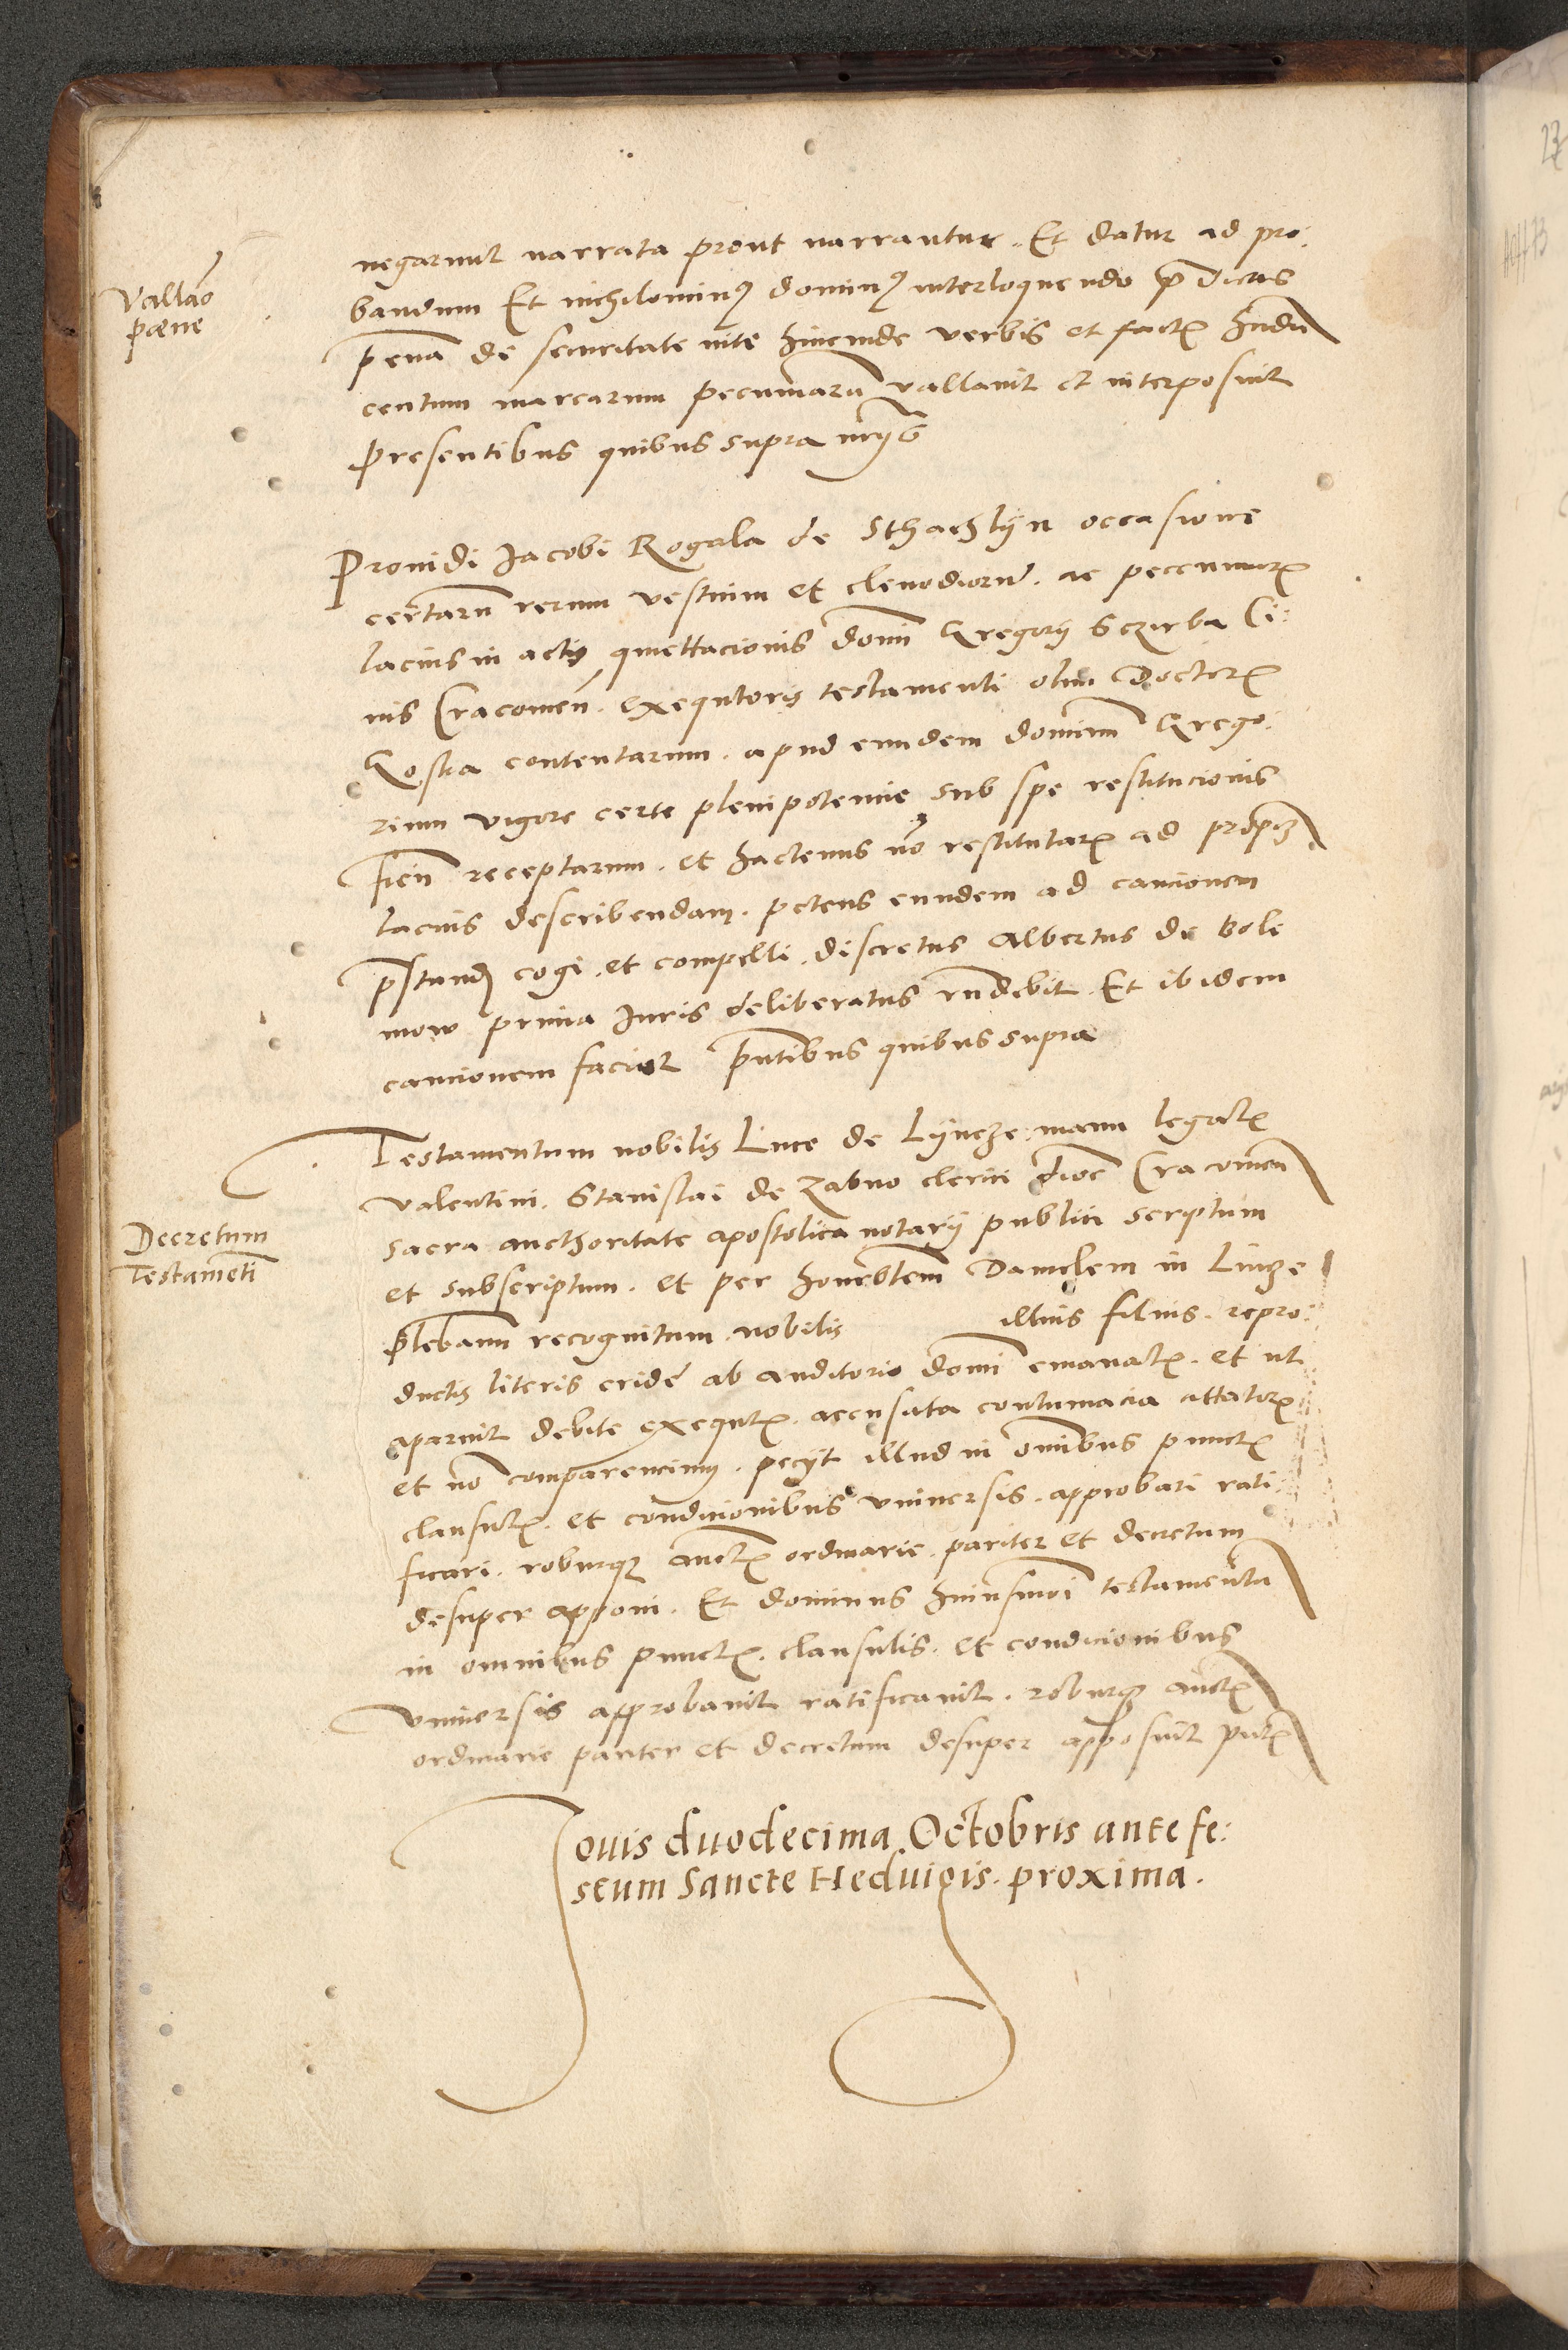 negarunt narrata prout narrantur. Et datur ad pro:
bandum Et nichilomin9 domin9 interloquendo p̄ dictis
Vallāo
pæne
penā de securitate vite hincinde verbis et factꝭ hn̄dū
centum marcarum pecuniarū vallavit et interposuit
Presentibus quibus supra
Providi Jacobi Rogala de Sthachlÿn occasione
certarū rerum vestium et clenodiorū. ac peccuniarꝭ
lacius in actis quiettacionis dōni Gregorÿ Sczirba Ci:
vis Cracovien̄. exequtoris testamenti olim Doctorꝭ
Gostia contentarum. apud eundem dominū Grego:
rium vigore certe plenipotencie sub spe restitucionis
fien̄ receptarum. et hactenus nō restitutarꝭ ad
lacius describendam. petens eundem ad caucionem
p̄standꝭ cogi. et compelli. discretus Albertus de Bole
mow prima Juris deliberatus rn̄debit. Et ibidem
caucionem faciet p̄ntibus quibus supra
Testamentum nobilis Luce de Lÿncze manu legalꝭ
valentini. Stanislai de Zabno clerici dioc̄ Cracovien̄
Decretum
Testamēti
sacra aucthoritate apostolica notarÿ publici scriptum
et subscriptum. et per honorabīlem Danielem in Lincze
plebanū recognitum nobilis illius filius. repro:
ductis literis eridē ab auditorio dōni emanatꝭ. et ut
aparuit debite exequtꝭ. accusata contumacia cittatorꝭ
et nō comparencium. pecÿt illud in omībus punctꝭ
clausulꝭ. et condicionibus universis. approbari rati:
ficari. roburqꝫ auctꝭ ordinarie. pariter et decretum
desuper apponi. Et dominus huiusmōi testamentū
in omnibus punctꝭ. clausulis. et condicionibus
Universis approbavit ratificavit. roburqꝫ auctꝭ
ordinarie pariter et decretum desuper apposuit pn̄tꝭ
Jovis duodecima Octobris ante fe:
stum Sancte Heduigis. proxima.